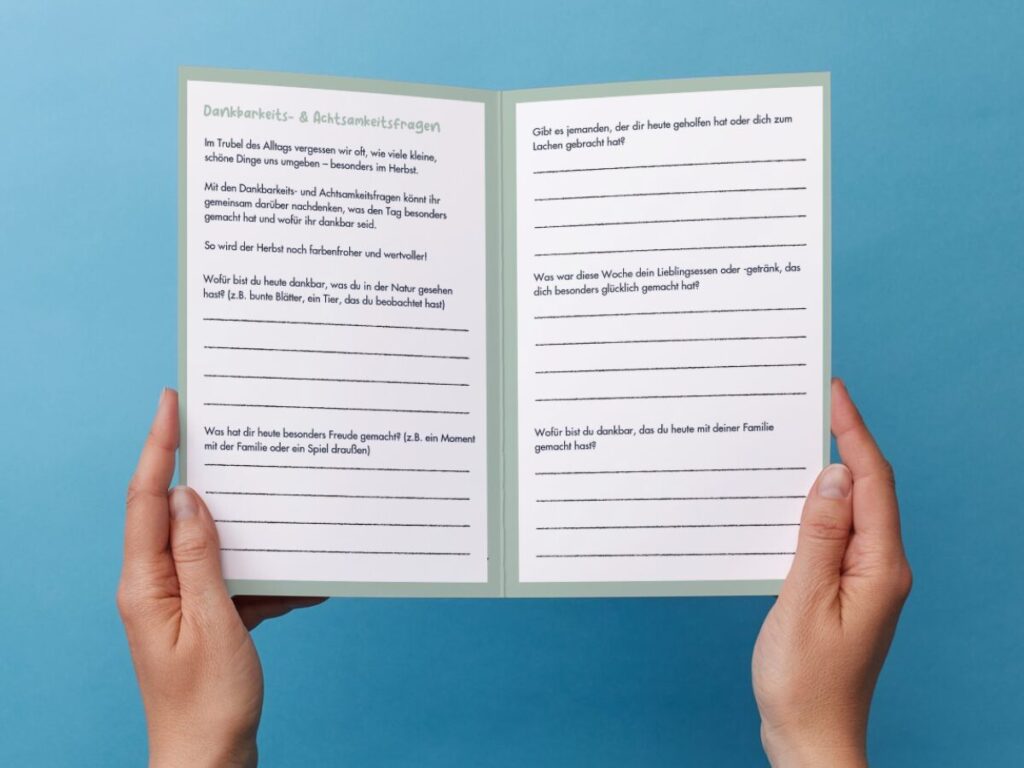 Dankbarkeits- & Achtsamkeitsfragen
Im Trubel des Alltags vergessen wir oft, wie viele kleine,
schöne Dinge uns umgeben – besonders im Herbst.
Mit den Dankbarkeits- und Achtsamkeitsfragen könnt ihr
gemeinsam darüber nachdenken, was den Tag besonders
gemacht hat und wofür ihr dankbar seid.
So wird der Herbst noch farbenfroher und wertvoller!
Wofür bist du heute dankbar, was du in der Natur gesehen
hast? (z.B. bunte Blätter, ein Tier, das du beobachtet hast)
Was hat dir heute besonders Freude gemacht? (z.B. ein Moment
mit der Familie oder ein Spiel draußen)
Gibt es jemanden, der dir heute geholfen hat oder dich zum
Lachen gebracht hat?
Was war diese Woche dein Lieblingsessen oder -getränk, das
dich besonders glücklich gemacht hat?
Wofür bist du dankbar, das du heute mit deiner Familie
gemacht hast?